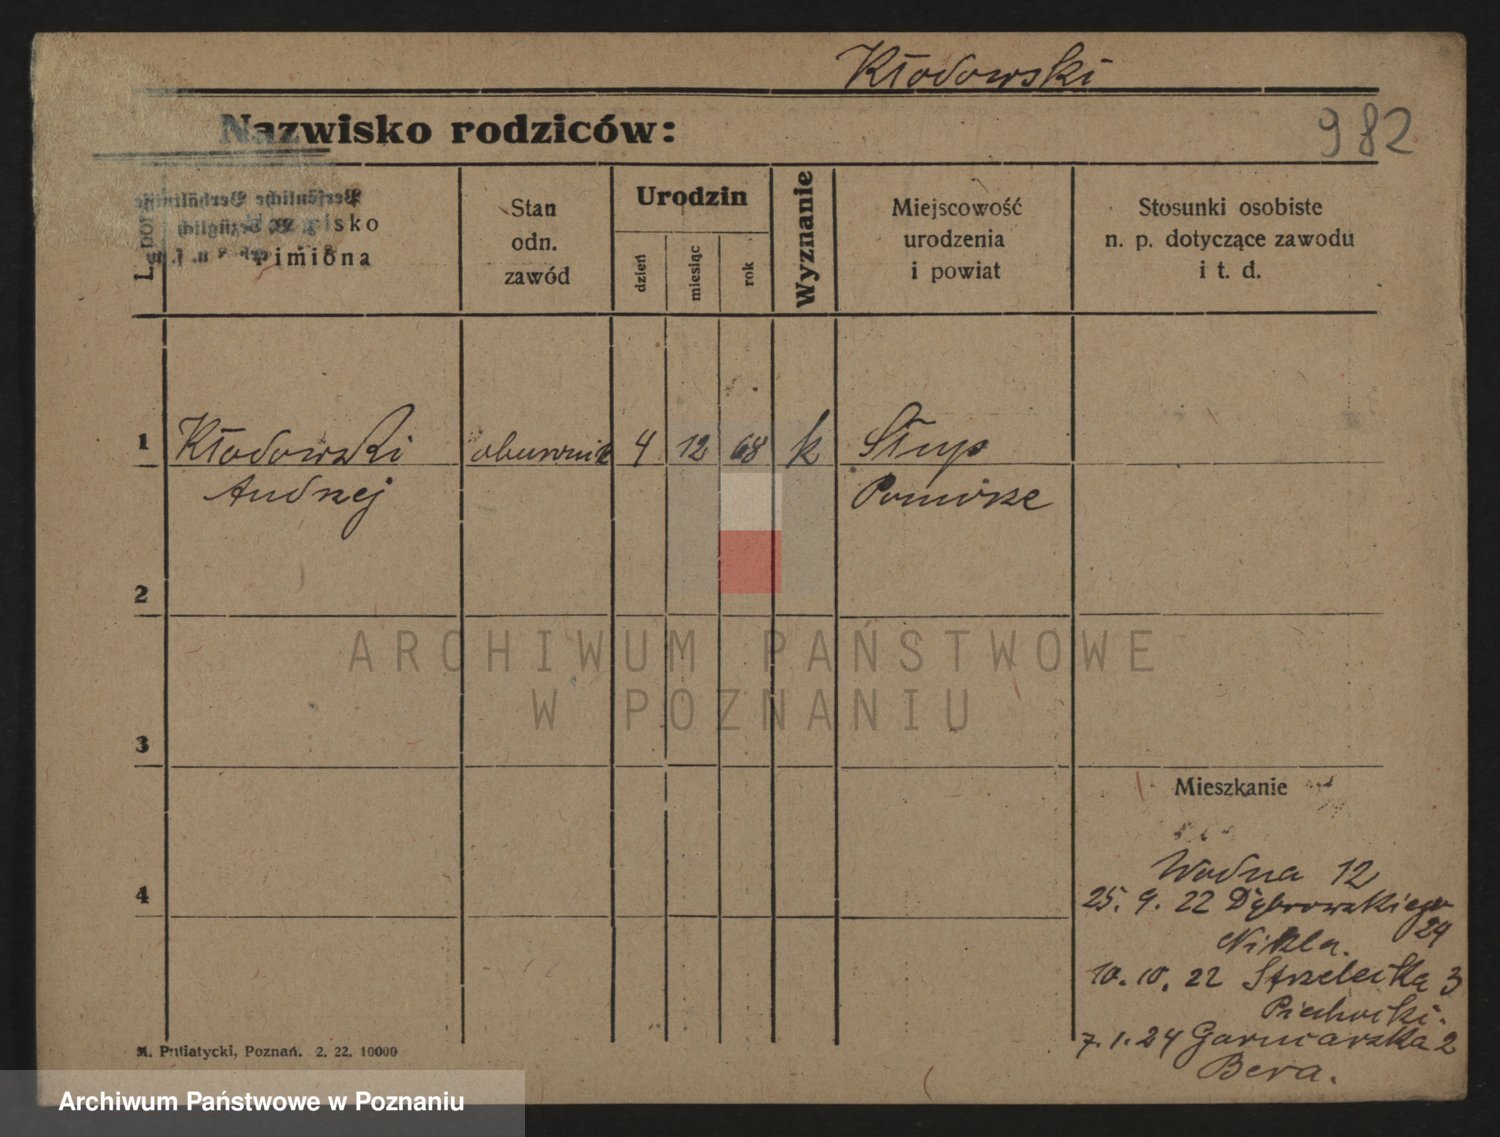 Kłodowski
Nazwisko rodziców:
982
L. por
isko
imiona
Stan
odn.
zawód
Urodzin
dzień
miesiąc
rok
Wyznanie
Miejscowość
urodzenia
i powiat
Stosunki osobiste
n. p. dotyczące zawodu
i t. d.
1
Kłodowski
Andrzej
obuwnik
4
12
68
k
Słup
Pomorze
2
3
4
ARCHIWUM PAŃSTWOWE
W POZNANIU
Mieszkanie
Wodna 12
25. 9. 22 Dąbrowskiego
24
Nikla.
10. 10. 22 Strzelecka 3
Piechocki.
7. 1. 24 Garncarska 2
Bera.
M. Putiatycki, Poznań. 2. 22. 10000
Archiwum Państwowe w Poznaniu